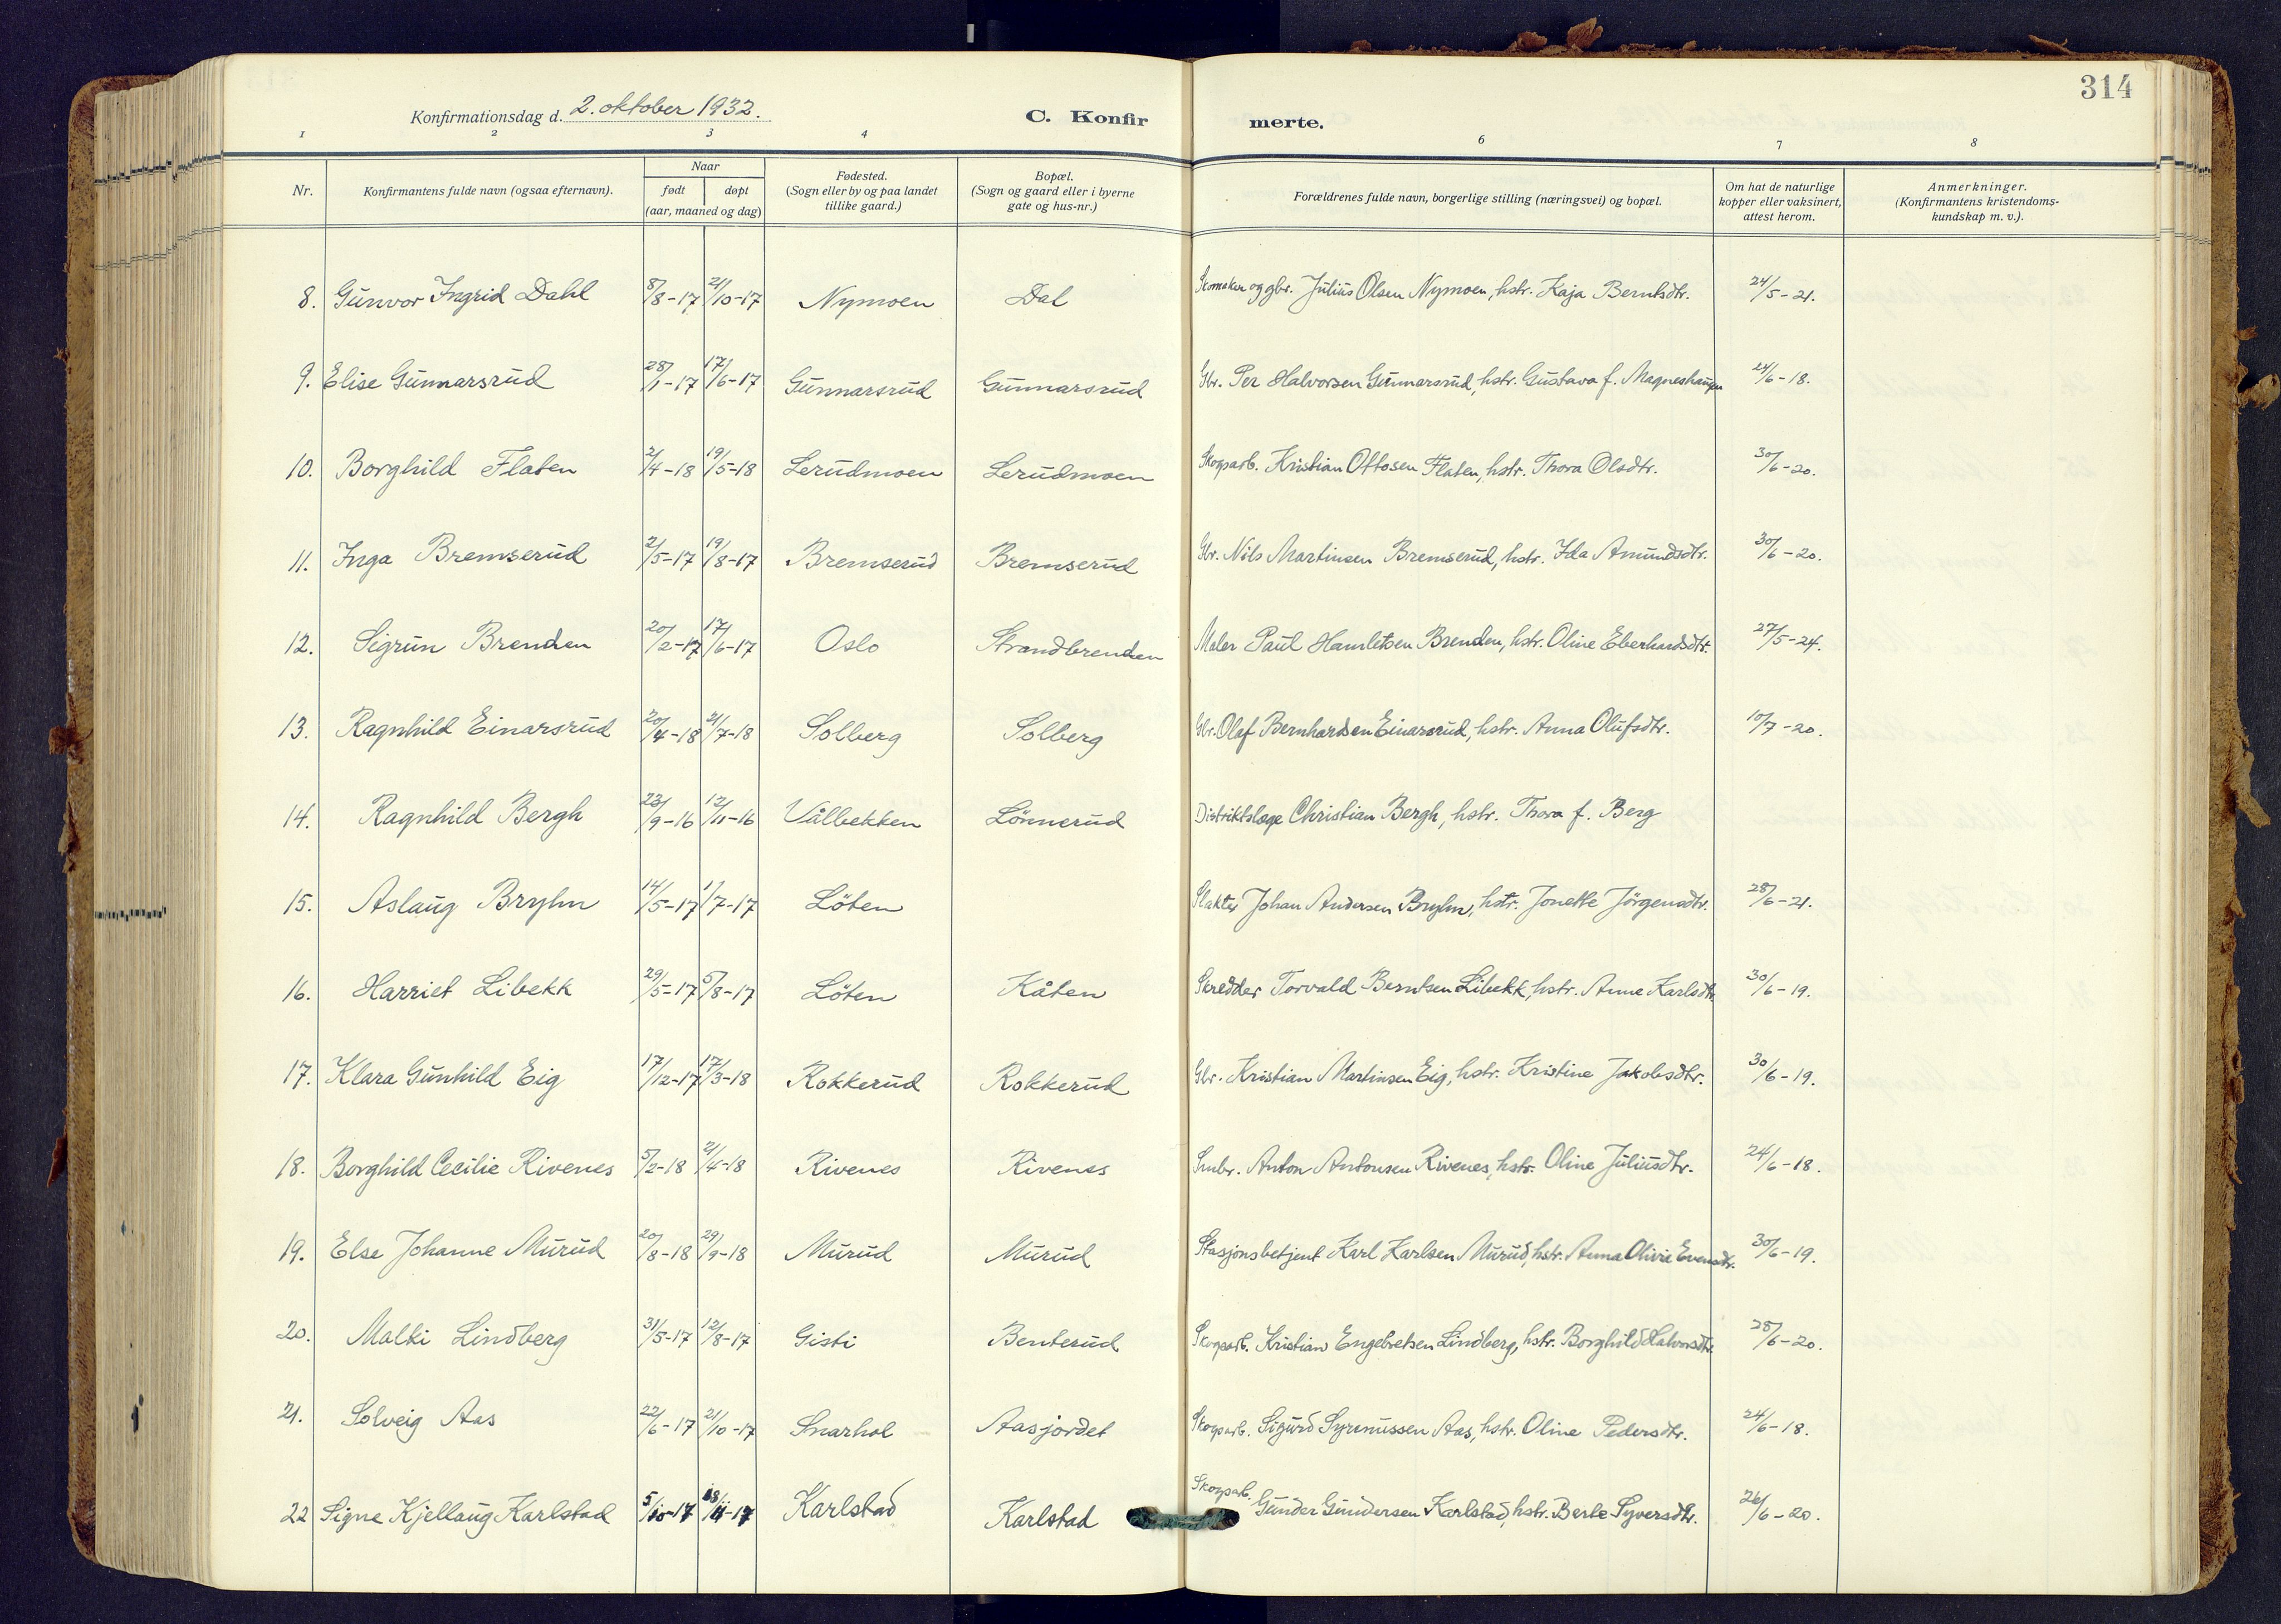 314
Konfirmationsdag d. 2. oktober 1932. C. Konfirmerte.
1 2 3 4 6 7 8
Nr. Konfirmantens fulde navn (ogsaa efternavn). Naar født døpt (aar, maaned og dag) Fødested. (Sogn eller by og paa landet tillike gaard.) Bopæl. (Sogn og gaard eller i byerne gate og hus-nr.) Forældrenes fulde navn, borgerlige stilling (næringsvei) og bopæl. Om hat de naturlige kopper eller vaksinert, attest herom. Anmerkninger. (Konfirmantens kristendomskundskap m. v.).
8. Gunvor Ingrid Dahl 8/8-17 21/10-17 Nymoen Dal Skomaker og gbr. Julius Olsen Nymoen, hstr. Kaja Berntsdtr. 24/5-21.
9. Elise Gunnarsrud 28/1-17 17/6-17 Gunnarsrud Gunnarsrud Gbr. Per Halvorsen Gunnarsrud, hstr. Gustava f. Magneshaugen 24/6-18.
10. Borghild Flaten 2/4-18 19/5-18 Lerudmoen Lerudmoen Skogsarb. Kristian Ottosen Flaten, hstr. Thora Olsdtr. 30/6-20.
11. Inga Bremserud 2/5-17 19/8-17 Bremserud Bremserud Gbr. Nils Martinsen Bremserud, hstr. Ida Amundsdtr. 30/6-20.
12. Sigrun Brenden 20/2-17 17/6-17 Oslo Strandbrenden Maler Paul Hamletsen Brenden, hstr. Oline Eberhardsdtr. 27/5-24.
13. Ragnhild Einarsrud 20/4-18 21/7-18 Solberg Solberg Gbr. Olaf Bernhardsen Einarsrud, hstr. Anna Olufsdtr. 10/7-20.
14. Ragnhild Bergh /9-16 12/11-16 Vålbekken Lönnerud Distriktslæge Christian Bergh, hstr. Thora f. Berg
15. Aslaug Bryhn 14/5-17 1/7-17 Löten Slakter Johan Andersen Bryhn, hstr. Jonette Jörgensdtr. 28/6-21.
16. Harriet Libekk 29/5-17 5/8-17 Löten Kåten Skredder Torvald Berntsen Libekk, hstr. Anne Karlsdtr. 30/6-19.
17. Klara Gunhild Eig 17/12-17 17/3-18 Rokkerud Rokkerud Gbr. Kristian Martinsen Eig, hstr. Kristine Jakobsdtr. 30/6-19.
18. Borghild Cecilie Rivenes 5/2-18 21/4-18 Rivenes Rivenes Smbr. Anton Antonsen Rivenes, hstr. Oline Juliusdtr. 24/6-18.
19. Else Johanne Murud 20/8-18 29/9-18 Murud Murud Stasjonsbetjent Karl Karlsen Murud, hstr. Anna Olivie Evensdtr. 30/6-19.
20. Malki Lindberg 31/5-17 12/8-17 Gisti Benterud Skogsarb. Kristian Engebretsen Lindberg, hstr. Borghild Halvorsdtr. 28/6-20.
21. Solveig Aas 22/6-17 21/10-17 Snarhol Aasjordet Skogsarb. Sigurd Syrinussen Aas, hstr. Oline Pedersdtr. 24/6-18.
22 Signe Kjellaug Karlstad 5/10-17 18/11-17 Karlstad Karlstad Skogsarb. Gunder Gundersen Karlstad, hstr. Berte Syversdtr. 26/6-20.